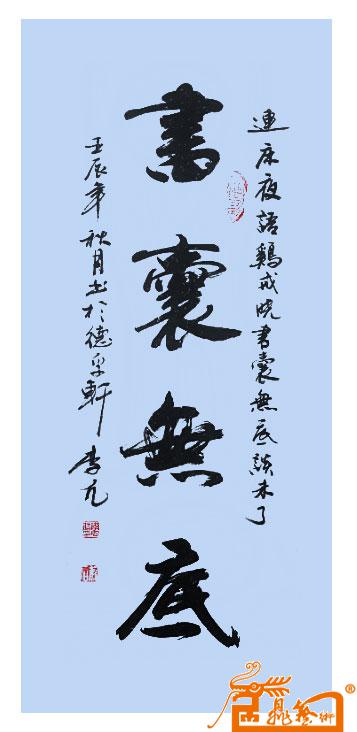 連床夜語鷄戒曉書囊無底談未了
書囊無底
壬辰年秋月书於德孚軒 李凡